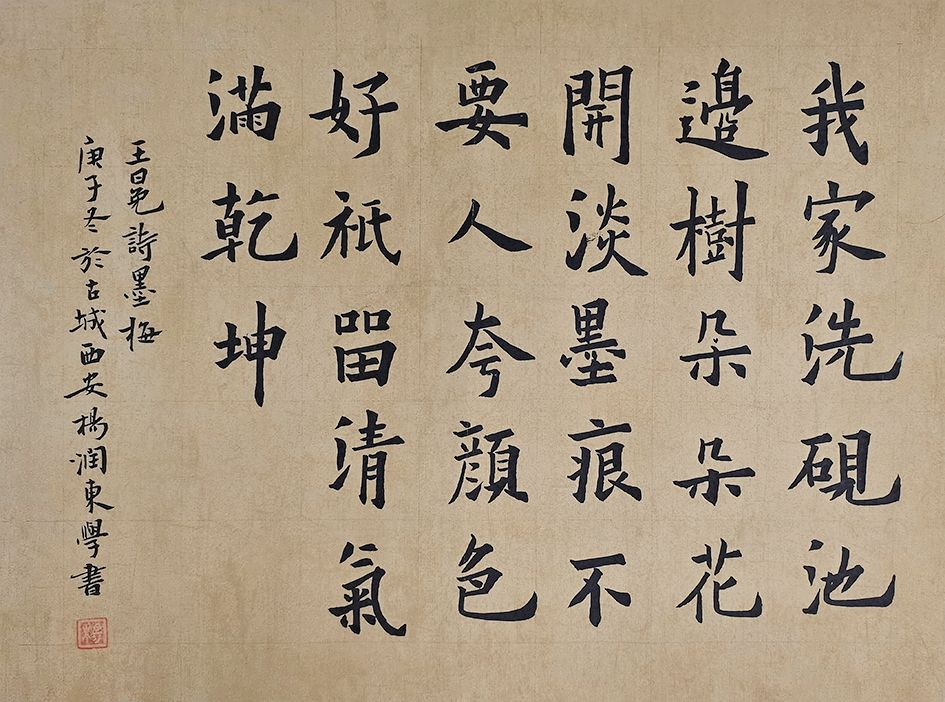 我家洗硯池
邊樹朵朵花
開淡墨痕不
要人夸顏色
好祇留清氣
滿乾坤
王冕詩墨梅
庚子冬於古城西安楊潤東學書